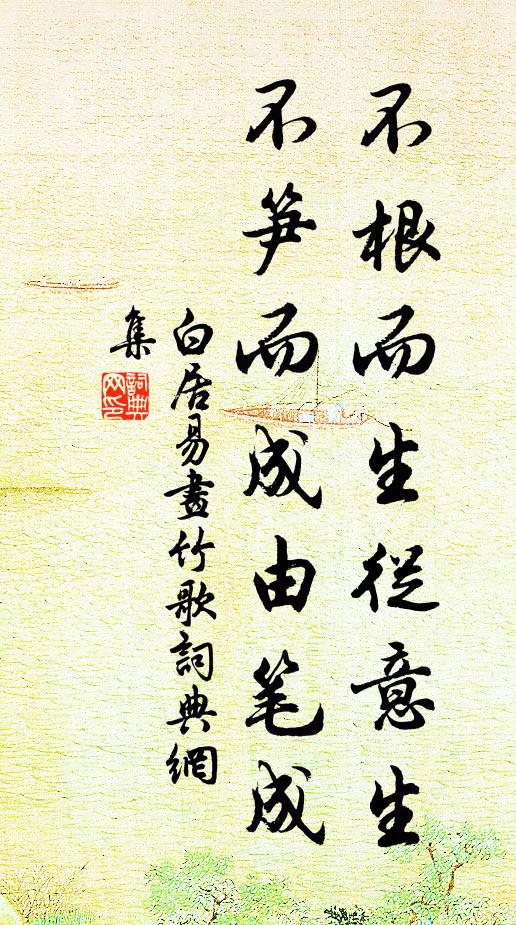 不根而生從意生
不笋而成由笔成
白居易畫竹歌詞典網
集
詞典
网印